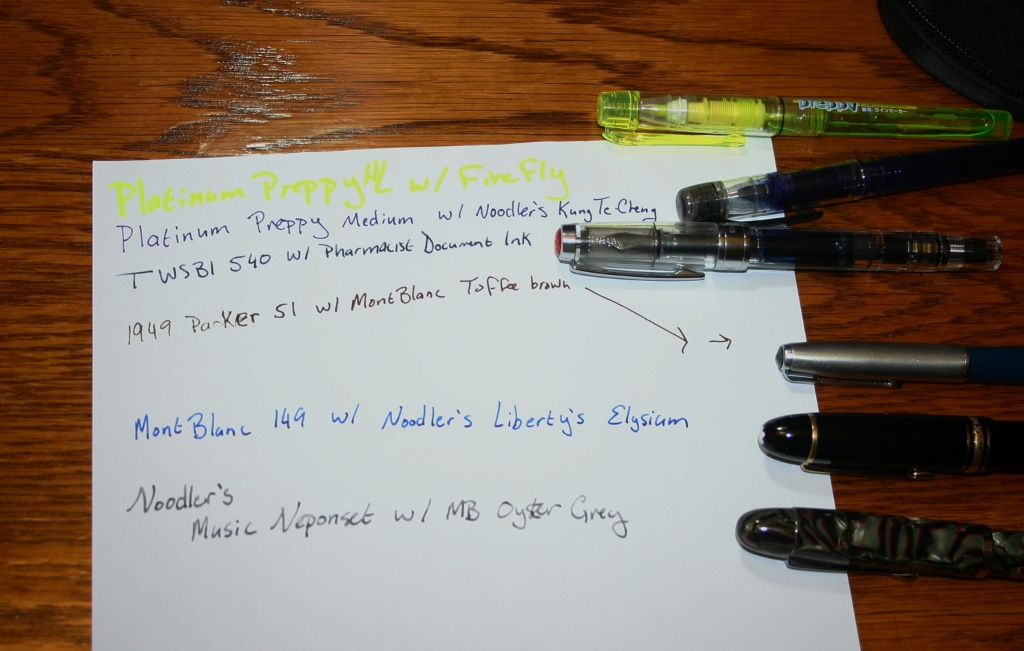 preppy
Platinum Preppy HL w/ Firefly
Platinum Preppy Medium w/ Noodler's Kung Te-Cheng
TWSBI 540 w/ Pharmacist Document Ink
1949 Parker 51 w/ MontBlanc Toffee brown
MontBlanc 149 w/ Noodler's Liberty's Elysium
Noodler's
Music Neponset w/ MB Oyster Grey